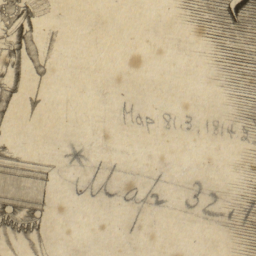 Map 81.3.1814 2
* Map 32.1